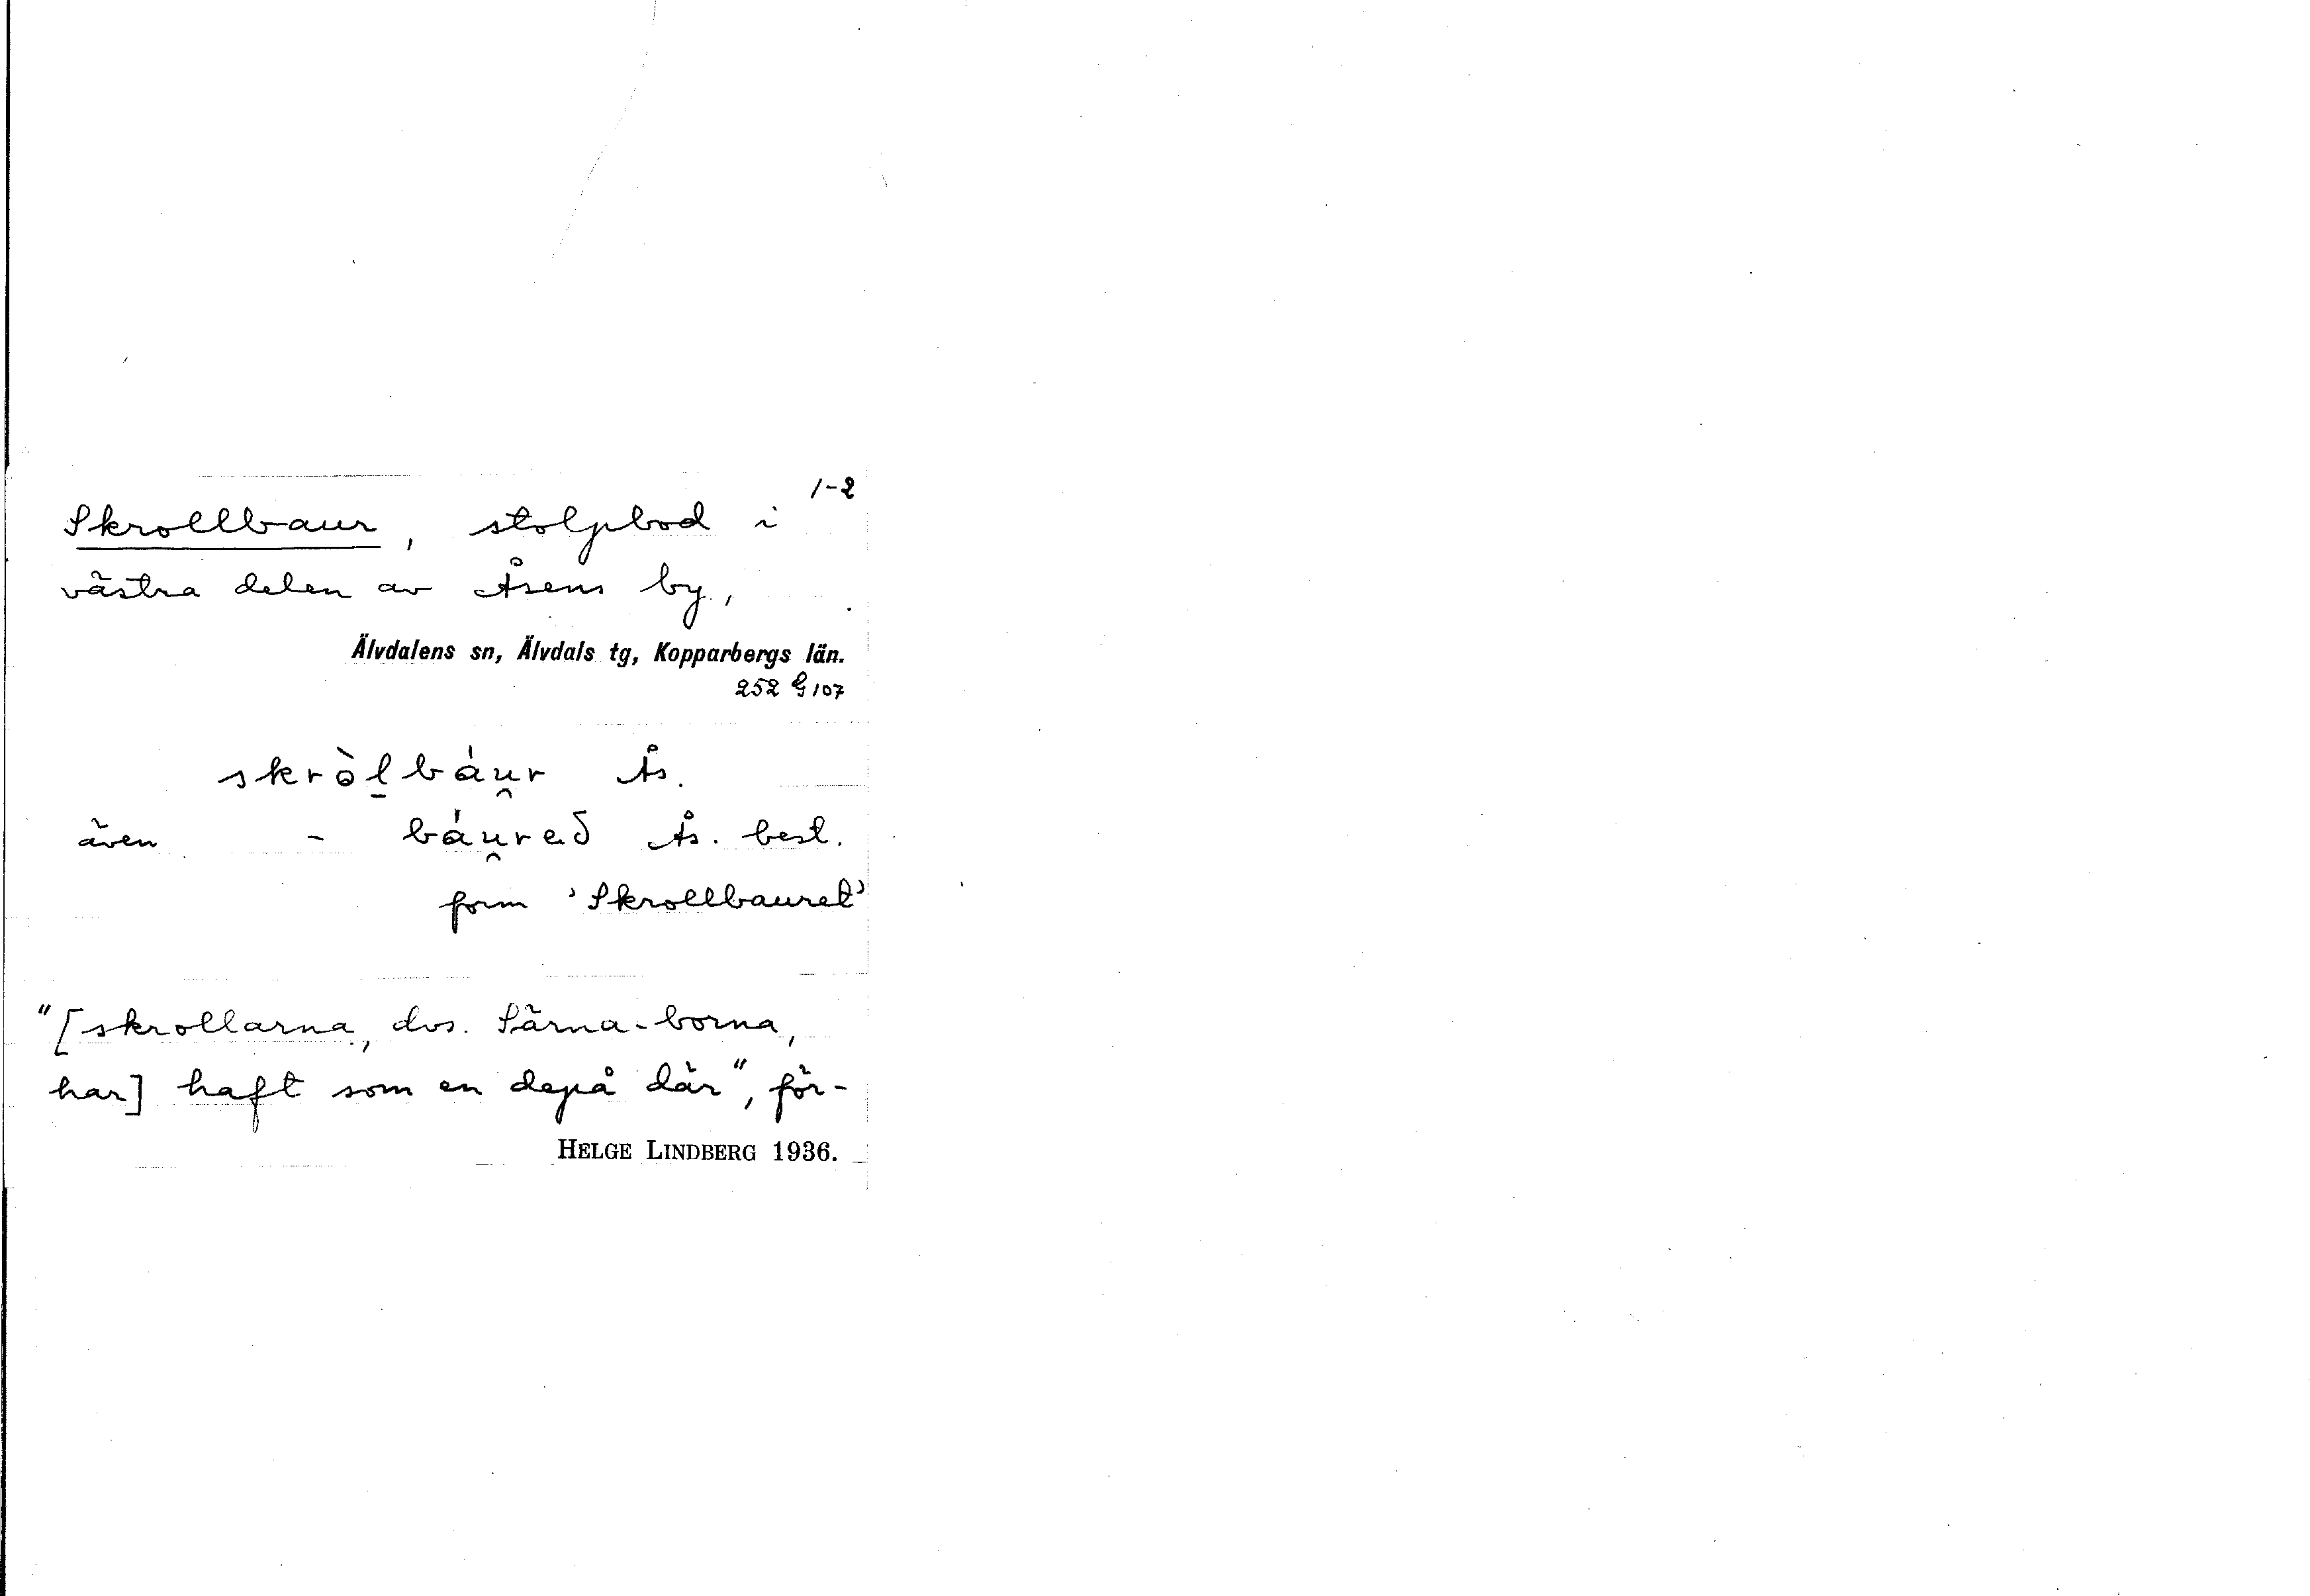 1-2
Skrollbaur, stolpbod i
västra delen av Åsens by,
Älvdalens sn, Älvdals tg, Kopparbergs län.
252 G 107
skròl̠báu̯r Ås.
även - báu̯reð Ås. best.
form 'Skrollbauret'
"[skrollarna, dvs. Särna-borna,
har] haft som en depå där", för-
HELGE LINDBERG 1936.